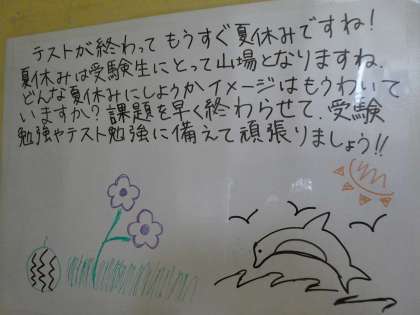 テストが終わって もうすぐ夏休みですね!
夏休みは受験生にとって山場となりますね.
どんな夏休みにしようかイメージはもうわいて
いますか?課題を早く終わらせて、受験
勉強やテスト勉強に備えて頑張りましょう!!